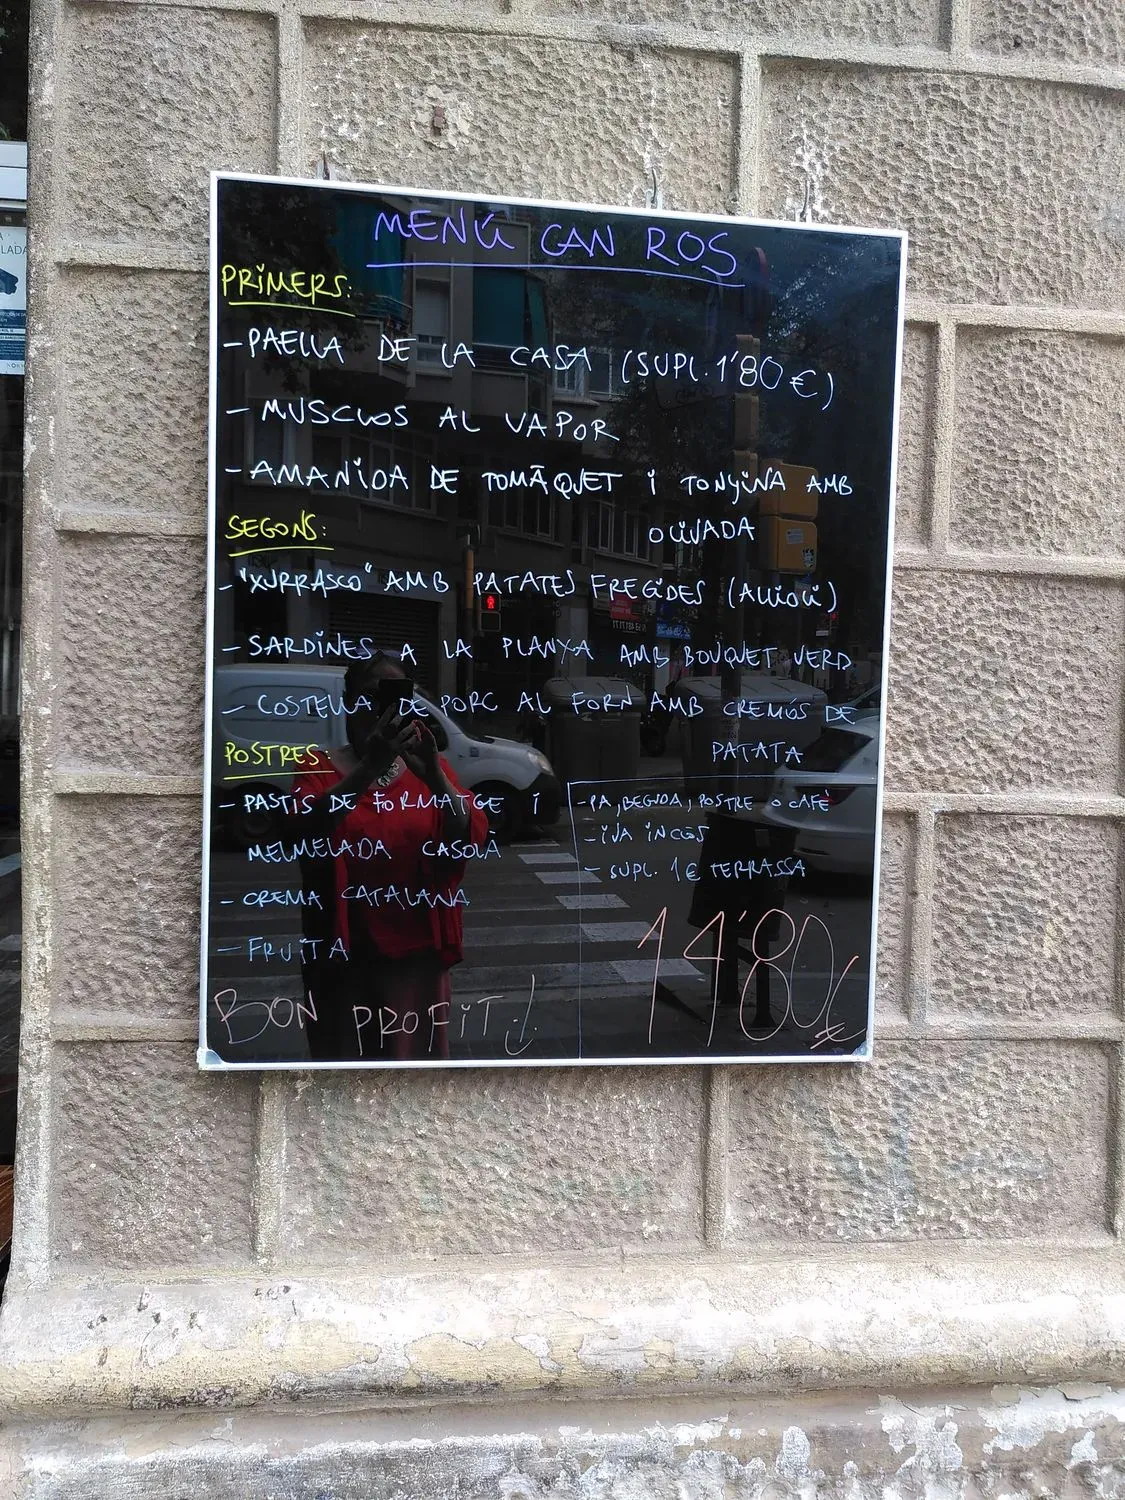 MENÚ CAN ROS
PRIMERS:
- PAELLA DE LA CASA (SUPL. 1'80 €)
- MUSCLOS AL VAPOR
- AMANIDA DE TOMÀQUET I TONYINA AMB
OLIVADA
SEGONS:
- "XURRASCO" AMB PATATES FREGIDES (ALLIOLI)
- SARDINES A LA PLANXA AMB BOUQUET VERD
- COSTELLA DE PORC AL FORN AMB CREMÓS DE
PATATA
POSTRES:
- PASTÍS DE FORMATGE I
MELMELADA CASOLÀ
- CREMA CATALANA
- FRUITA
- PA, BEGUDA, POSTRE O CAFÈ
- IVA INCLÒS
- SUPL. 1€ TERRASSA
14'80€
BON PROFIT!